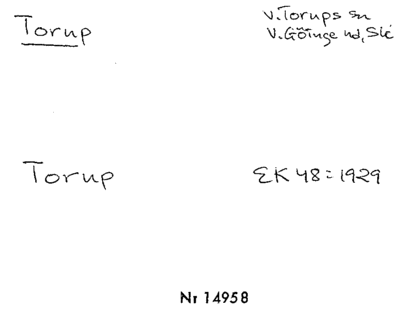 Torup
V.Torups sn
V.Göinge hd, Skå
Torup
EK 48 = 1929
Nr 14958